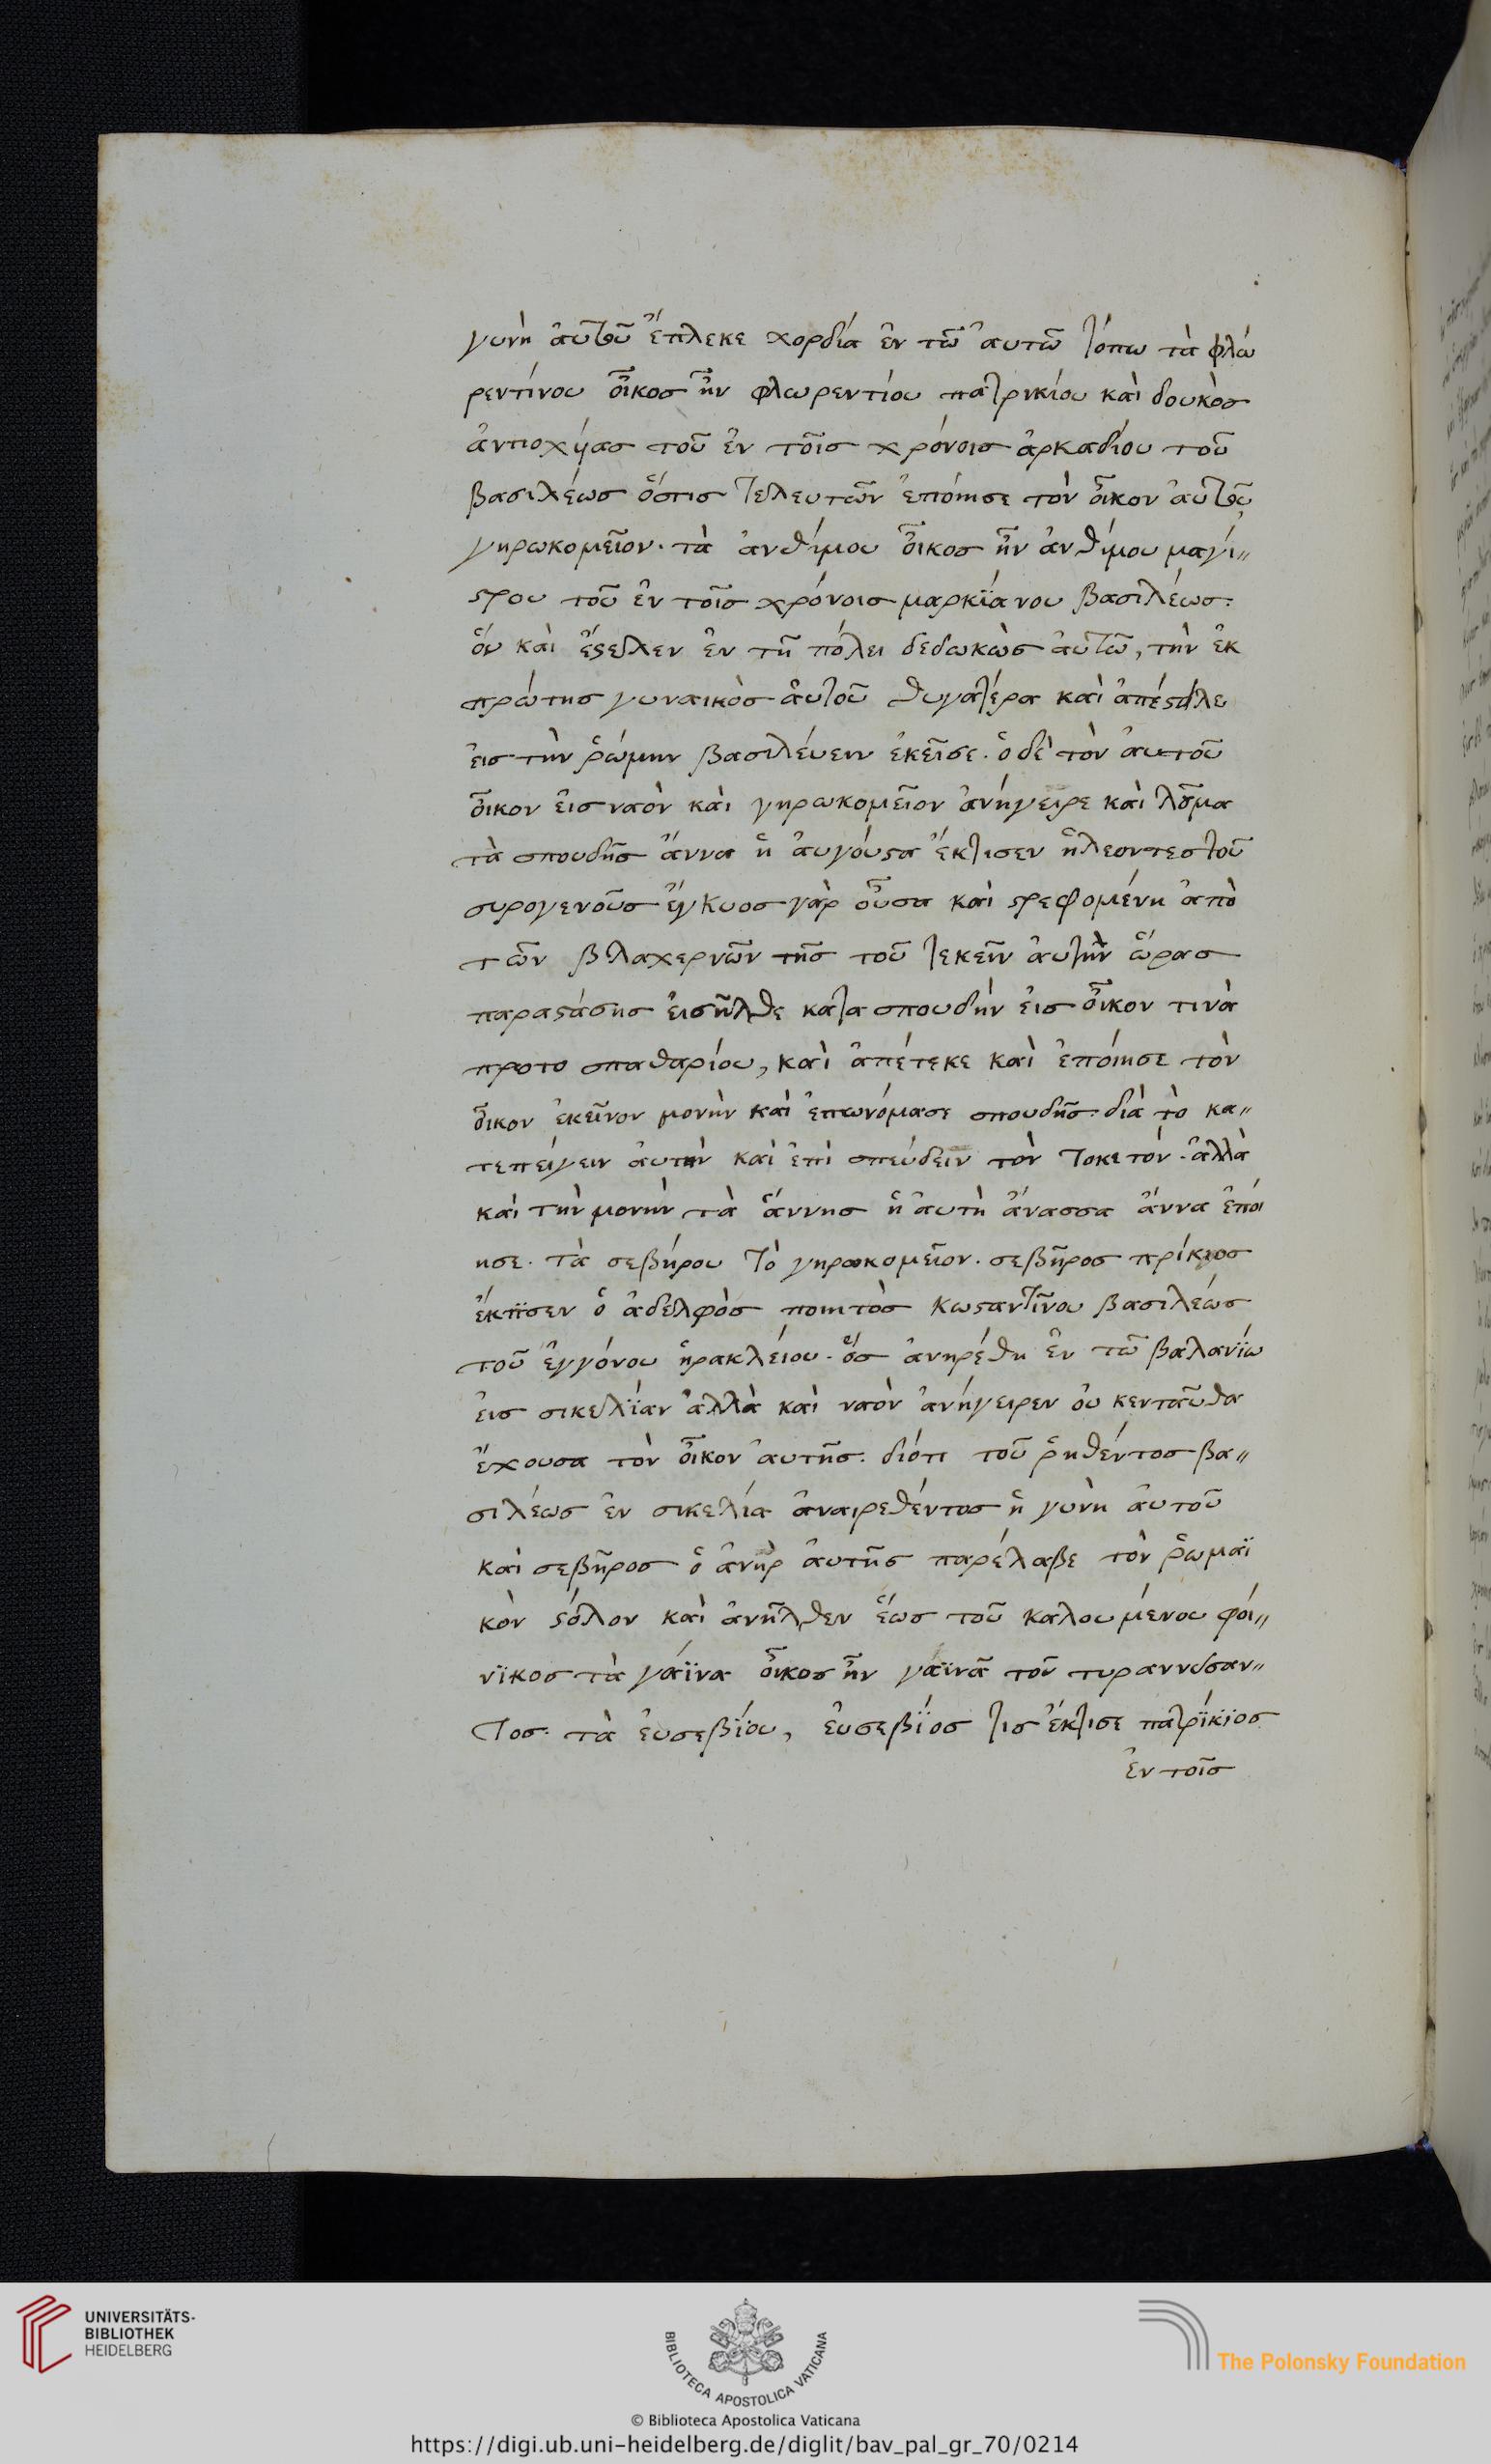 γυνὴ ἀυτοῦ ἔπλεκε χορδία ἐν τῶ ἀυτῶ τόπω τὰ φλω
ρεντίνου οἶκοσ ἦν φλωρεντίου πατρικίου καὶ δουκὸσ
ἀντιοχείασ τοῦ ἐν τοῖσ χρόνοισ ἀρκαδίου τοῦ
βασιλέωσ ὅστισ τελευτῶν ἐποίησε τὸν οἶκον ἀυτοῦ
γηρωκομεῖον· τὰ ἀνθίμου οἶκοσ ἦν ἀνθίμου μαγί〃
ϛρου τοῦ ἐν τοῖσ χρόνοισ μαρκϊάνου βασιλέωσ:
ὅν καὶ ἔϛεψεν ἐν τῆ πόλει δεδωκὼσ ἀυτῶ, τὴν ἐκ
πρώτησ γυναικὸσ ἀυτοῦ θυγατέρα καὶ ἀπέϛειλε
εἰσ τὴν ῥώμην βασιλέυειν ἐκεῖσε· ὁ δὲ τὸν ἀυτοῦ
οἶκον εἰσ ναὸν καὶ γηρωκομεῖον ἀνήγειρε καὶ λοῦμα
τὰ σπουδῆσ ἄννα ἡ ἀυγούϛα ἔκτισεν ἡ λεοντεσ τοῦ
συρογενοῦσ ἔγκυοσ γὰρ οὖσα καὶ ϛρεφομένη ἀπὸ
τῶν βλαχερνῶν τῆσ τοῦ τεκεῖν ἀυτὴν ὥρασ
παραϛάσησ εἰσῆλθε κατα σπουδήν εἰσ οἶκον τινὰ
προτο σπαθαρίου, καὶ ἀπέτεκε καὶ ἐποίησε τὸν
οἶκον ἐκεῖνον μονὴν καὶ ἐπωνόμασε σπουδῆσ· διὰ τὸ κα〃
τεπείγειν ἀυτὴν καὶ ἐπὶ σπεύδειν τὸν τοκετόν· ἀλλὰ
καὶ τὴν μονὴν τὰ ἄννησ ἡ ἀυτὴ ἄνασσα ἄννα ἐποί
ησε· τὰ σεβήρου τὸ γηροκομεῖον· σεβῆροσ πρίκιοσ
ἔκτϊσεν ὁ ἀδελφὸσ ποιητὸσ κωϛαντῖνου βασιλέωσ
τοῦ ἐγγόνου ἡρακλείου· ὅσ ἀνηρέθη ἐν τῶ βαλανίω
εἰσ σικελϊίαν ἀλλὰ καὶ ναὸν ἀνήγειρεν ὀυ κενταῦθα
ἔχουσα τὸν οἶκον ἀυτῆσ· διότι τοῦ ῥηθέντοσ βα〃
σιλέωσ ἐν σικελία ἀναιρεθέντοσ ἡ γυνὴ ἀυτοῦ
καὶ σεβῆροσ ὁ ἀνὴρ ἀυτῆς παρέλαβε τὸν ῥωμαϊ
κὸν ϛόλον καὶ ἀνῆλθεν ἕωσ τοῦ καλουμένου φοί〃
νϊκοσ τὰ γάϊνα οἶκοσ ἦν γάϊνᾶ τοῦ τυραννησαν〃
τοσ· τὰ ἐυσεβΐου, ἐυσεβΐοσ τισ ἔκτισε πατρΐκϊοσ
ἐν τοῖσ
UNIVERSITÄTS-
BIBLIOTHEK
HEIDELBERG
BIBLIOTECA APOSTOLICA VATICANA
The Polonsky Foundation
© Biblioteca Apostolica Vaticana
https://digi.ub.uni-heidelberg.de/diglit/bav_pal_gr_70/0214